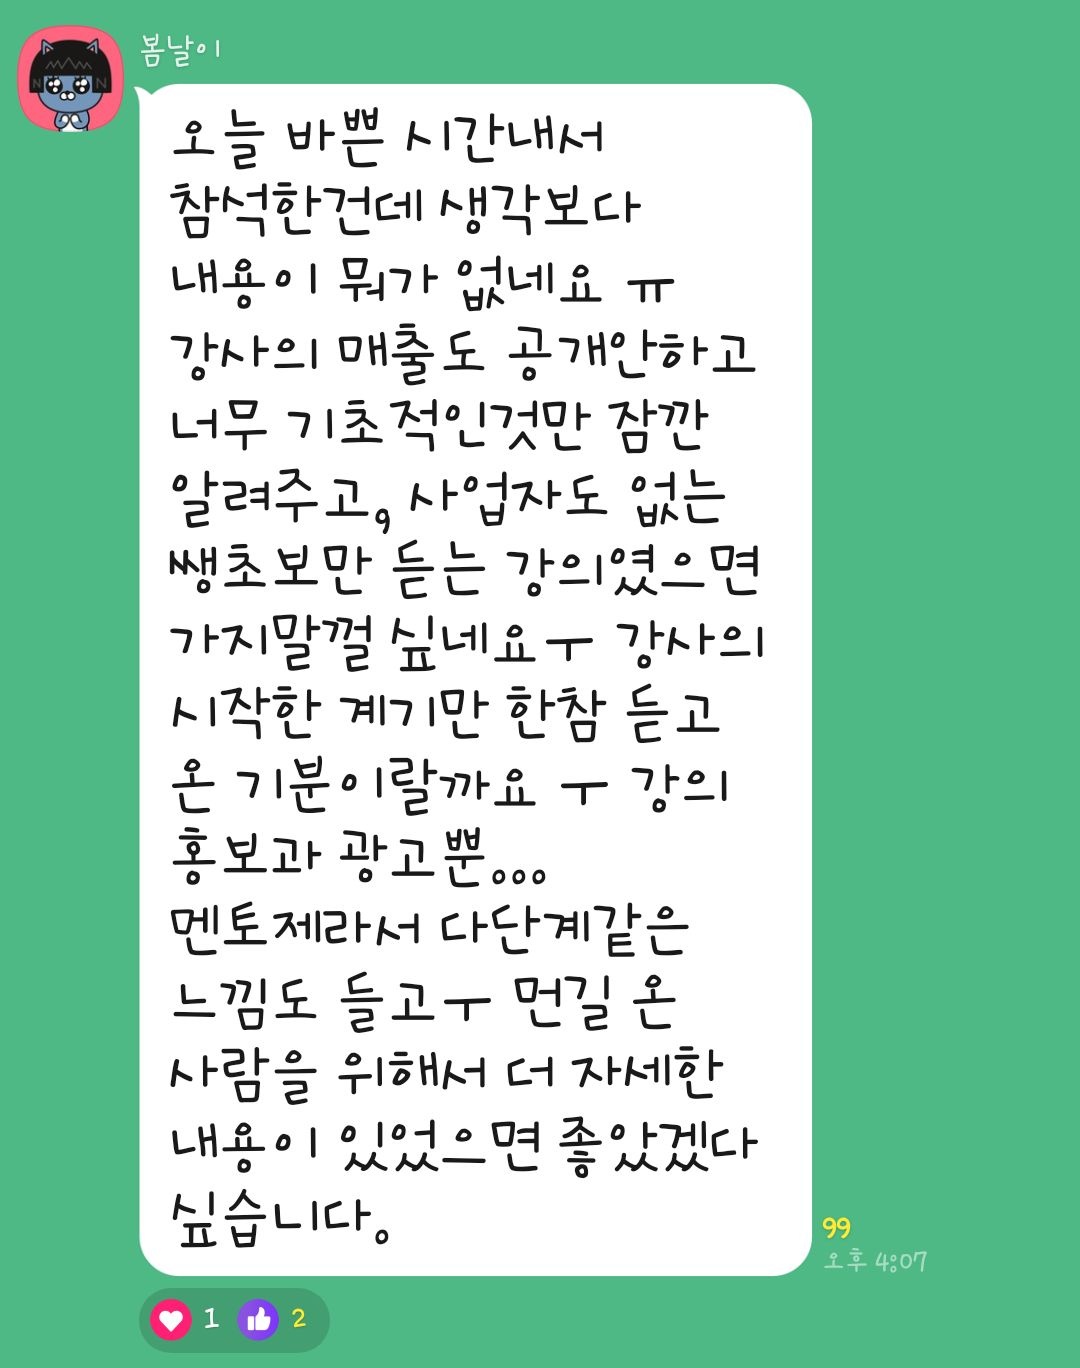 봄날이
오늘 바쁜 시간내서
참석한건데 생각보다
내용이 뭐가 없네요 ㅠ
강사의 매출도 공개안하고
너무 기초적인것만 잠깐
알려주고, 사업자도 없는
쌩초보만 듣는 강의였으면
가지말껄 싶네요ㅜ 강사의
시작한 계기만 한참 듣고
온 기분이랄까요 ㅜ 강의
홍보과 광고뿐...
멘토제라서 다단계같은
느낌도 들고ㅜ 먼길 온
사람을 위해서 더 자세한
내용이 있었으면 좋았겠다
싶습니다.
99
오후 4:07
1 2